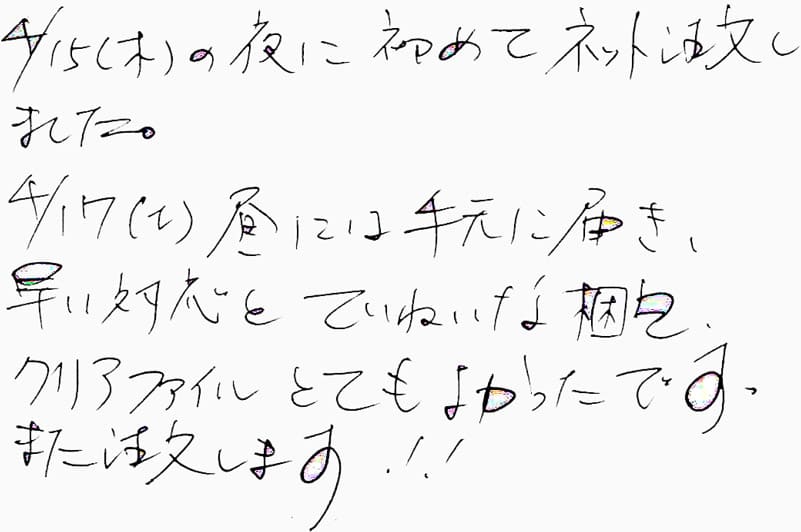 4/15(木)の夜に初めてネット注文し
ました。
4/17(土)昼には手元に届き、
早い対応とていねいな梱包、
クリアファイルとてもよかったです。
また注文します!!